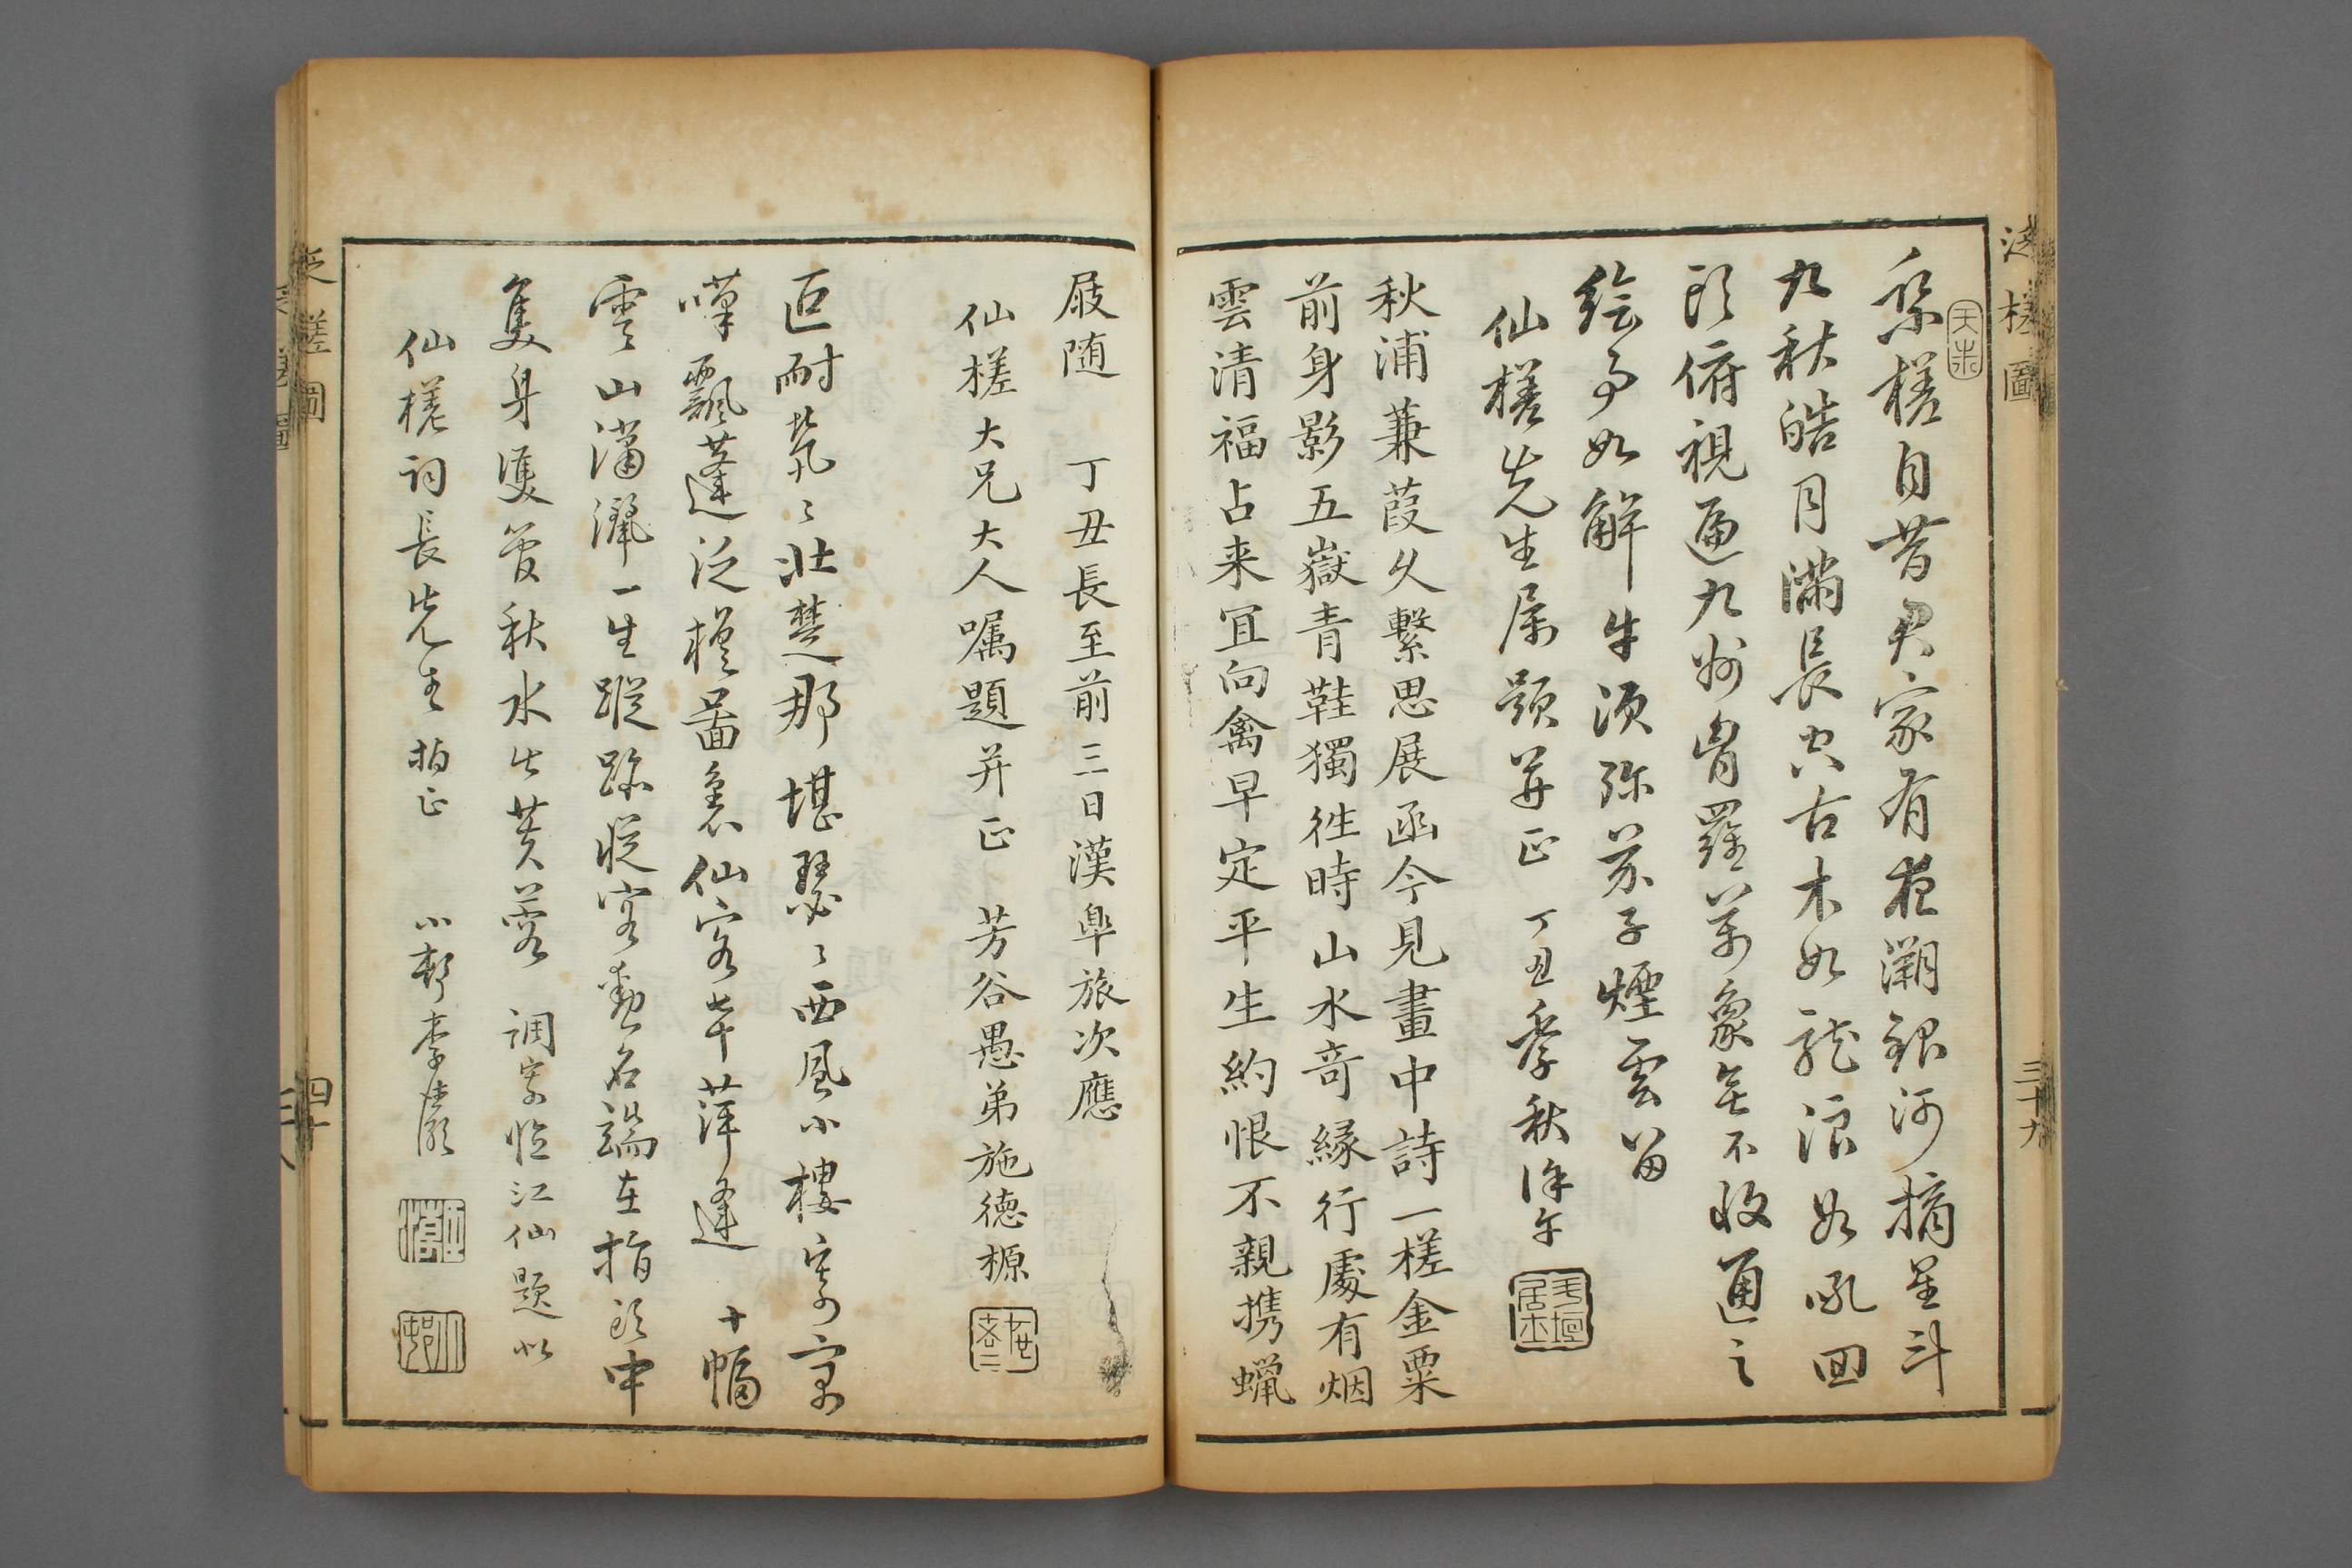 泛槎圖
三十九
天半
乘槎自昔君家有夜溯銀河摘星斗
九秋皓月滿長空古木如龍浪如吼回
頭俯視遍九州胷羅萬象無不收通之
繪事如解牛須彌芥子煙雲留
仙槎先生屬題並正 丁丑季秋
秋浦蒹葭久繫思展函今見畫中詩一槎金粟
前身影五嶽青鞋獨徃時山水奇緣行處有烟
雲清福占来冝向禽早定平生約恨不親携蠟
屐随 丁丑長至前三日漢臯旅次應
仙槎大兄大人嘱題并正 芳谷愚弟施徳榞
叵耐茫〻壮楚那堪瑟〻西風小樓寥寂
嘆飄蓬泛槎圖裏仙客幸萍逢 十幅
雲山瀟灑一生蹤跡從容動名端在指頭中
隻身雙管秋水出芙蓉 調寄臨江仙題似
仙槎詞長先生拍正 小邨李
泛槎圖
四十